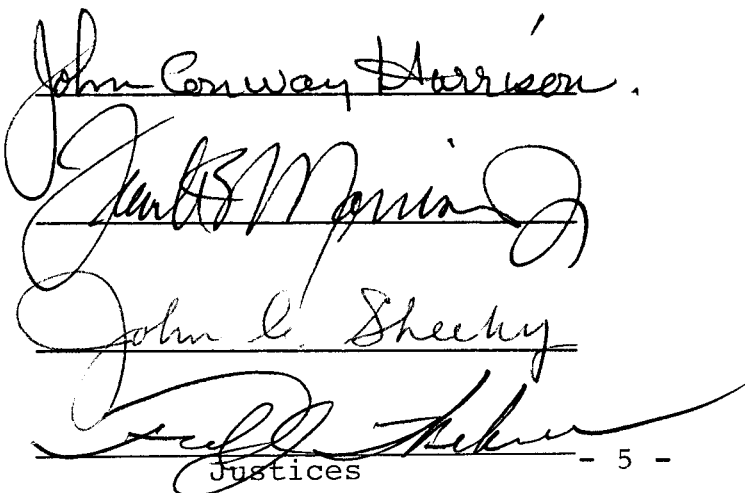 John Conway Harrison.
Frank B Morrison Jr
John C. Sheehy
Justices - 5 -